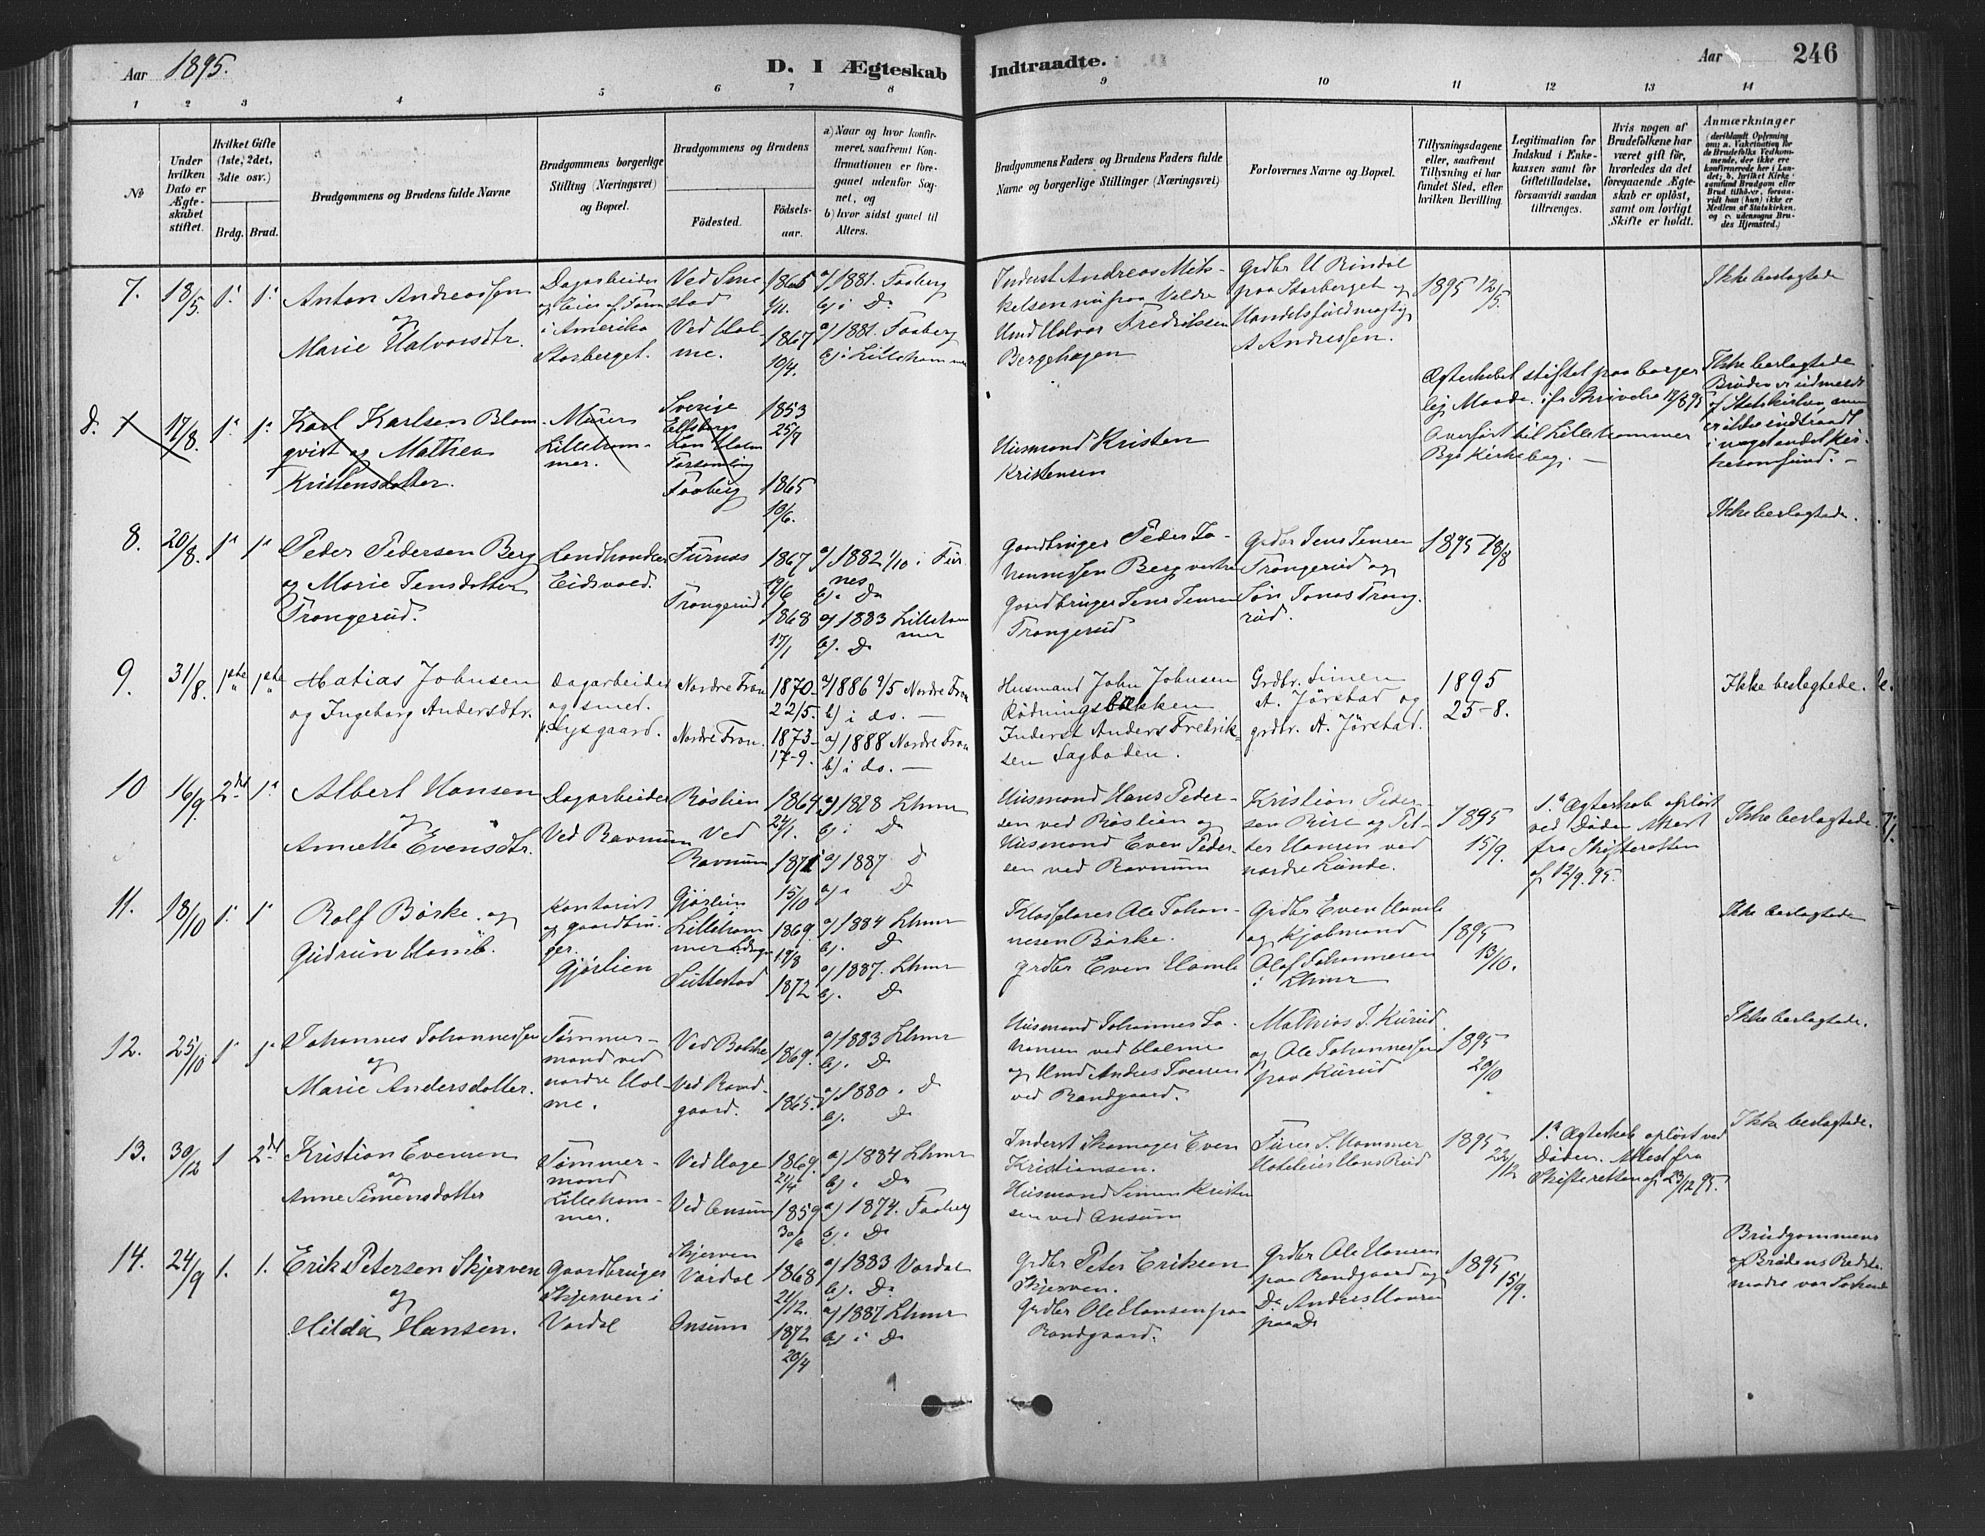 Aar 1895.
D. I Ægteskab
Indtraadte.
Aar
246
1 2 3 4 5 6 7 8 9 10 11 12 13 14
No
Under hvilken Dato er Ægteskabet stiftet.
Hvilket Gifte (1ste, 2det, 3die osv.)
Brdg. Brud.
Brudgommens og Brudens fulde Navne
Brudgommens borgerlige Stilling (Næringsvei) og Bopæl.
Brudgommens og Brudens
Fødested. Fødselsaar.
a) Naar og hvor konfirmeret, saafremt Konfirmationen er foregaaet udenfor Sognet, og
b) hvor sidst gaaet til Alters.
Brudgommens Faders og Brudens Faders fulde Navne og borgerlige Stillinger (Næringsvei)
Forlovernes Navne og Bopæl.
Tillysningsdagene eller, saafremt Tillysning ei har fundet Sted, efter hvilken Bevilling.
Legitimation for Indskud i Enkekassen samt for Giftetilladelse, forsaavidt saadan tiltrænges.
Hvis nogen af Brudefolkene har været gift før, hvorledes da det foregaaende Ægteskab er opløst, samt om lovligt Skifte er holdt.
Anmærkninger
7. 18/5 1. 1.
Anton Andreassen
og
Marie Halvorsdtr.
Dagarbeider
i Amerika
Storberget.
Ved Sme
stad
Ved Hol-
me.
1865
1867
10/4.
a) 1881. Faaberg
b) i Do
a) 1881. Faaberg
b) i Lillehammer
Inderst Andreas Mik-
kelsen nu paa Valdre
Hmd Halvor Fredriksen
Bergehagen
Grdbr U Rindal
paa Storberget og
Handelsfuldmægtig
A Andressen.
1895 12/5.
Ikke beslægtede
17/8. 1. 1.
Karl Karlsen Blom-
qvist og Mathea
Kristensdatter.
Murer
Lillehammer.
Sverige
Elfsborgs
Len Holm
Forsamling
Faaberg
1853
25/9
1865
10/6.
Husmand Kristen
Kristensen
Ægteskabet stiftet paa borger
lig Maade. ifr Skrivelse 17/8 95
Overført til Lillehammer
Bys Kirkebog. -
Ikke beslægtede
Bruden er udmeldt
af Statskirken, men
er ikke indtraadt
i noget andet Kir-
kesamfund. -
8. 20/8. 1. 1.
Peder Pedersen Berg
og Marie Jensdatter
Trongerud.
Landhandler
Eidsvold.
Furnes
Trongerud
1867
1868
17/1
a) 1882 1/10 i Fur
nes
b). Do
a) 1883 Lilleham
mer
b). Do
Gaardbruger Peder Jo-
hannessen Berg vestre
Gaardbruger Jens Jensen
Trongerud
Grdbr Jens Jensen
Trongerud og
Søn Jonas Tronge-
rud.
1895 18/8
Ikke beslægtede.
9. 31/8. 1ste 1ste
Matias Johnsen
og Ingeborg Andersdtr.
Dagarbeider
og smed.
Lysgaard.
Nordre Fron
Nordre Fron.
1870-
22/5.
1873-
17-9.
a) 1886 9/5 Nordre Fron
b) i do. -
a) 1888 Nordre Fron
b) i do. -
Husmand John Johnsen
Rødningsbakken
Inderst Anders Fredrik-
sen Sagboden.
Grdbr. Simen
A. Jørstad og
grdbr. A. Jørstad.
1895
25-8.
Ikke beslegtede.
10 16/9. 2det 1.
Albert Hansen
og
Annette Evensdtr.
Dagarbeider
Ved Ravnum
Røslien
Ved
Ravnum
1864
24/1.
1871
15/10
a) 1878 Lhmr
b) i Do
a) 1887 Do
Husmand Hans Peder-
sen ved Røslien og
Husmand Even Peder-
sen ved Ravnum
Kristian Peder-
sen Riise og Pet-
ter Hansen ved
nordre Lunde.
1895
15/9.
1. Ægteskab opløst
ved Døden Attest
fra Skifteretten
af 12/9. 95.
Ikke beslægtede.
11. 18/10 1. 1.
Rolf Børke. og
Gudrun Homb.
Kontorist
og gaardbru-
ger.
Gjørlien
Gjørlien
Lilleham
mer
Suttestad
1869.
19/8
1872
a) 1884 Lhmr
b). Do
a) 1887. Lhmr
b). Do
Ole Johan-
nesen Børke.
grdbr Even Homb
Grdbr Even Homb
og Kjøbmand
Olaf Johannesen
i Lhmr
1895
13/10.
Ikke beslægtede
12. 25/10 1. 1.
Johannes Johannessen
og
Marie Andersdatter.
Tømmer-
mand ved
nordre Hol-
me.
Ved Bakke
Ved Rand-
gaard.
1869.
1865.
a) 1883 Lhmr
b). Do
a) 1880. Do
b). Do
Husmand Johannes Jo-
hansen ved Holme
og Hmd Anders Iversen
ved Randgaard.
Mathias J. Kurud.
og Ole Johannessen
paa Kurud
1895
20/10
Ikke beslægtede.
13. 30/12 1 2det
Kristian Evensen
og
Anne Simensdatter
Tømmer-
mand
Lilleham-
mer.
Ved Hage
Ved Onsum
1869.
1859
a) 1884 Lhmr
b). Do
a) 1874. Faaberg
b). Do
Inderst Skomager Even
Kristiansen.
Husmand Simen Kristen
sen ved Onsum
S. Hammer
Hans Rud
1895
22/12
1. Ægteskab opløst ved
Døden. Attest fra
Skifteretten af 23/12 95.
Ikke beslægtede.
14. 24/9 1. 1.
Erik Petersen Skjerven
og
Hilda Hansen.
Gaardbruger
Skjerven i
Vardal
Skjerven
Vardal
Onsum
1868
21/12.
1872
20/4
a) 1883 Vardal
b). Do.
a) 1887 Lhmr
b) i Do
Grdbr Peter Eriksen
Skjerven.
Grdbr Ole Hansen paa
Randgaard.
Grdbr Ole Hansen
paa Randgaard og
Do Anders Hansen
paa Do
1895
15/9.
Brudgommens
og Brudens Bedste-
mødre var Søskende